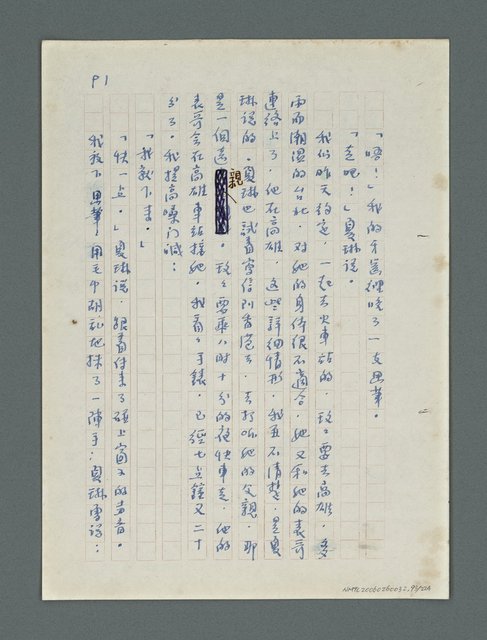 「唔!」我的牙齒裡咬了一支畫筆。
「走吧!」夏琳說。
我們昨天約定,一起去火車站的,玫玫要去高雄,多
雨而潮濕的台北,對她的身体很不適合,她又和她的表哥
連絡上了,他在高雄,這些詳細情形,我並不清楚,是夏
琳說的。夏琳也試着寫信到香港,去打听她的父親,那
是一個遠親。玫玫要乘八时十分的夜快車走,他的
表哥会在高雄車站接她,我看看手錶,已經七点鐘又二十
分了。我提高嗓门喊:
「我就下來。」
「快一点。」夏琳說,跟着传來了碰上窗子的声音。
我放下畫筆,用毛巾胡乱地抹了一陣手,夏琳曾說:
P1
NMTL20060260032_91/22A